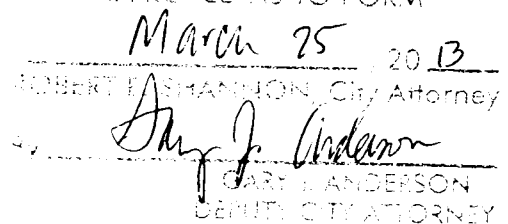 TO FORM
March 25, 20 13
ROBERT E. SHANNON, City Attorney
By Gary J. Anderson
GARY J. ANDERSON
DEPUTY CITY ATTORNEY